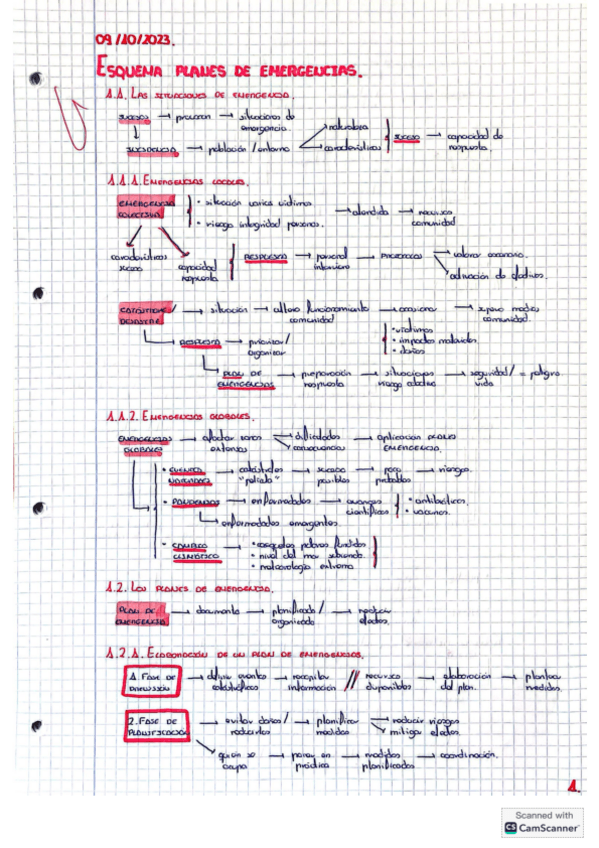 09/10/2023.
ESQUEMA PLANES DE EMERGENCIAS.
1.1. LAS SITUACIONES DE EMERGENCIA.
sucesos → provocan → situaciones de emergencia
respuesta → población/entorno naturaleza características suceso → capacidad de respuesta.
1.1.1. EMERGENCIAS LOCALES.
EMERGENCIA COLECTIVA • situación varias víctimas • riesgo integridad personas. → atendida → recursos comunidad
características suceso capacidad respuesta RESPUESTA → personal → PROTOCOLOS → valorar
/ DESASTRE → situación → altera funcionamiento comunidad → → comunidad.
• víctimas
• impactos materiales
• daños
RESPUESTA → priorizar/organizar
PLAN DE EMERGENCIAS → preparación respuesta → situaciones riesgo → seguridad/vida = peligro
1.1.2. EMERGENCIAS GLOBALES.
EMERGENCIAS GLOBALES → afectar zonas extensas dificultades consecuencias → aplicación PLANES EMERGENCIA.
• → catástrofes → sucesos posibles → poco probables → riesgos.
• PANDEMIAS → enfermedades → avances científicos • antibióticos. • vacunas.
→ enfermedades emergentes.
• CAMBIO CLIMÁTICO → • casquetes polares fundidos
• nivel del mar subiendo
• meteorología extrema
1.2. LOS PLANES DE EMERGENCIA.
PLAN DE EMERGENCIA → documento → planificado/organizado → efectos.
1.2.1. ELABORACIÓN DE UN PLAN DE EMERGENCIAS.
1. FASE DE → definir eventos catastróficos → recopilar información // RECURSOS disponibles → elaboración del plan. → plantear medidas.
2. FASE DE PLANIFICACIÓN → evitar daños/reducirlos → planificar medidas → reducir riesgos mitigar efectos.
quién se ocupa → poner en práctica → medidas planificadas → coordinación.
1.
Scanned with
CS CamScanner